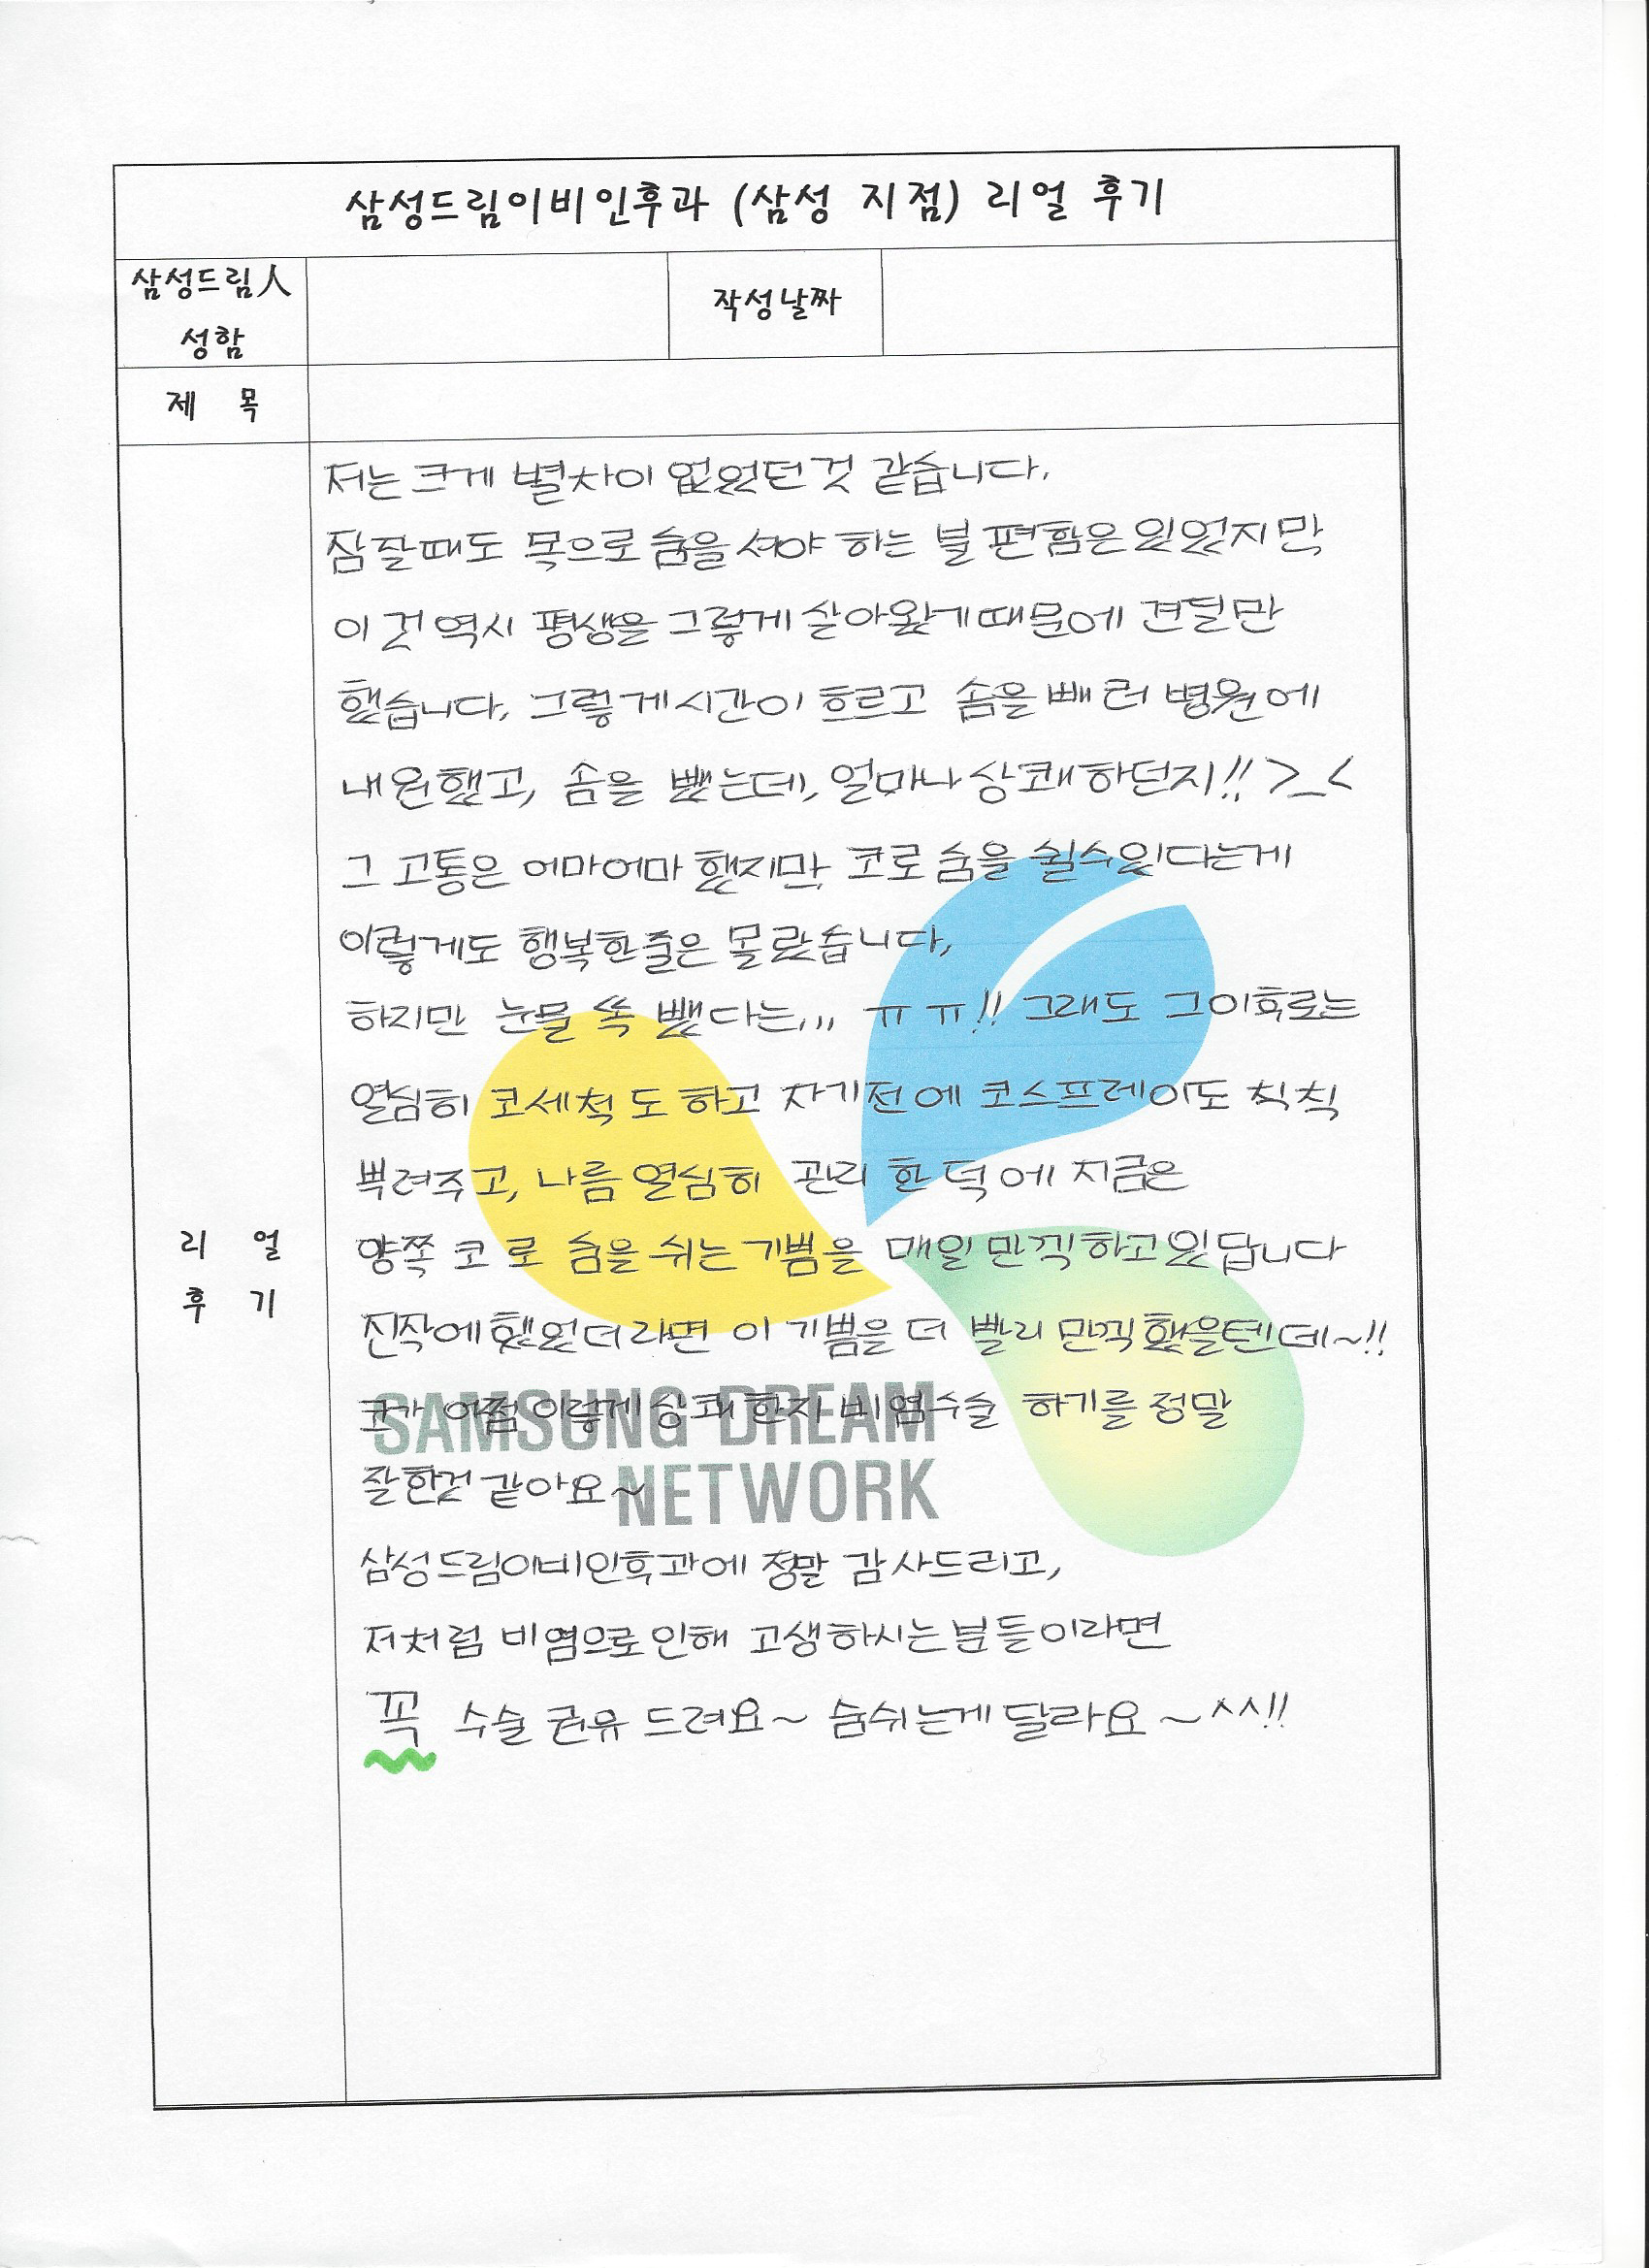 삼성드림이비인후과 (삼성 지점) 리얼 후기
삼성드림人
성함
작성날짜
제 목
저는 크게 별차이 없었던것 같습니다.
잠잘때도 목으로 숨을 셔야 하는 불편함은 있었지만
이것 역시 평생을 그렇게 살아왔기때문에 견딜만
했습니다. 그렇게 시간이 흐르고 솜을 빼러 병원에
내원했고, 솜을 뺐는데, 얼마나 상쾌하던지!! >_<
그 고통은 어마어마 했지만, 코로 숨을 쉴수있다는게
이렇게도 행복한줄은 몰랐습니다,
하지만 눈물 쏙 뺐다는,,, ㅠㅠ!! 그래도 그이후로는
열심히 코세척도 하고 자기전에 코스프레이도 칙칙
뿌려주고, 나름 열심히 관리 한 덕에 지금은
양쪽 코로 숨을 쉬는 기쁨을 매일 만끽하고있답니다
진작에 했었더라면 이 기쁨을 더 빨리 만끽했을텐데~!!
코가 어쩜 이렇게 상쾌한지 비염수술 하기를 정말
잘한것 같아요~
삼성드림이비인후과에 정말 감사드리고,
저처럼 비염으로 인해 고생하시는 분들이라면
꼭 수술 권유 드려요~ 숨쉬는게 달라요~^^!!
리 얼
후 기
SAMSUNG DREAM
NETWORK